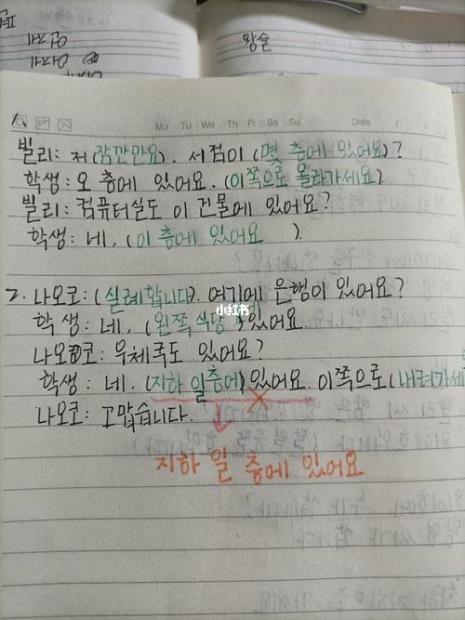 왕슬
Mo Tu We Th Fr Sa Su Date
빌리: 저 (잠깐만요). 서점이 (몇 층에 있어요)?
학생: 오 층에 있어요. (이쪽으로 올라가세요)
빌리: 컴퓨터실도 이 건물에 있어요?
학생: 네, (이 층에 있어요 ).
2. 나오코: (실례합니다). 여기에 은행이 있어요?
학생: 네, (왼쪽 식당 있어요.
小红书
나오코: 우체국도 있어요?
학생: 네. (지하 일층에) 있어요. 이쪽으로 (내려가세
나오코: 고맙습니다.
지하 일 층에 있어요